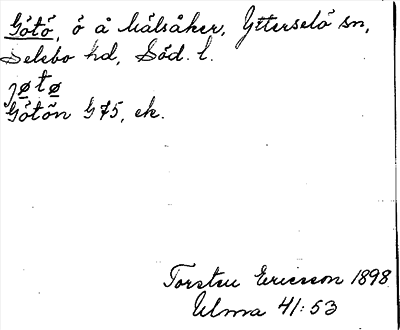 Götö, ö å Målsåker, Ytterselö sn,
Selebo hd, Söd. l.
jøtø
Götön G 75, ek.
Torsten Ericsson 1898
Ulma 41:53